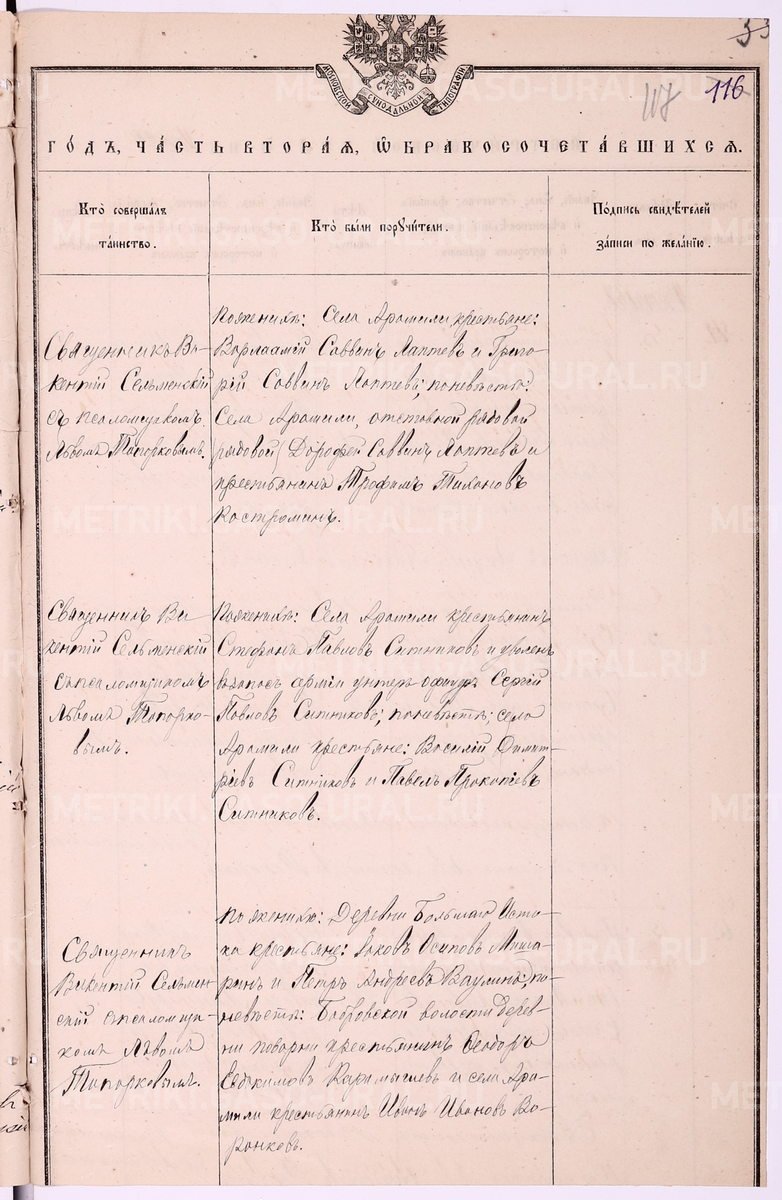 33
117 116
МОСКОВСКОЙ СѴНОДАЛЬНОЙ ТИПОГРАФІИ
ГО́ДЪ, ЧА́СТЬ ВТОРА́Я, Ѡ҆ БРАКОСОЧЕТА́ВШИХСѦ.
Кто̀ соверша́лъ
та́инство.
Кто̀ бы́ли порꙋчи́тели.
По́дпись свидѣ́телей
за́писи по жела́нїю.
Священникъ Ви-
кентій Сельменскій
съ псаломщикомъ
Львомъ Топорковымъ.
По женихѣ: Села Арамили крестьяне:
Варлаамій Саввинъ Лаптевъ и Григо-
рій Саввинъ Лаптевъ; по невѣстѣ:
Села Арамили, отставной рядовой
(рядовой) Дорофей Саввинъ Лаптевъ и
крестьянинъ Трофимъ Тихоновъ
Костроминъ.
Священникъ Ви-
кентій Сельменскій
съ псаломщикомъ
Львомъ Топорко-
вымъ.
По женихѣ: Села Арамили крестьянинъ
Стефанъ Павловъ Ситниковъ и уволен.
въ запасъ арміи унтеръ-офицеръ Сергій
Павловъ Ситниковъ; по невѣстѣ; села
Арамили крестьяне: Василій Димит-
ріевъ Ситниковъ и Павелъ Прокопіевъ
Ситниковъ.
Священникъ
Викентій Сельмен-
скій съ псаломщи-
комъ Львомъ
Топорковымъ.
По женихѣ: Деревни Большаго Исто-
ка крестьяне: Яковъ Осиповъ Миша-
ринъ и Петръ Андреевъ Ваулинъ; по
невѣстѣ: Бобровской волости дерев-
ни поварни крестьянинъ Ѳеодоръ
Евдокимовъ Карамышевъ и села Ара-
мили крестьянинъ Иванъ Ивановъ Во-
ронковъ.
METRIKI.GASO-URAL.RU